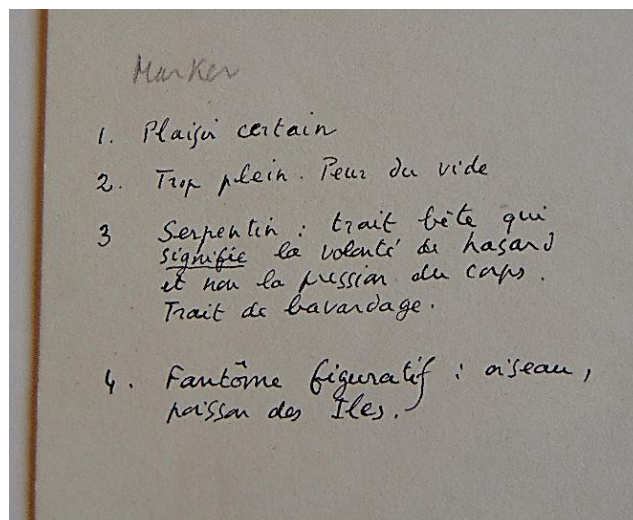 Marker
1. Plaisir certain
2. Trop plein. Peur du vide
3 Serpentin : trait bête qui
signifie la volonté de hasard
et non la pression du corps.
Trait de bavardage.
4. Fantôme figuratif : oiseau,
poisson des Iles.